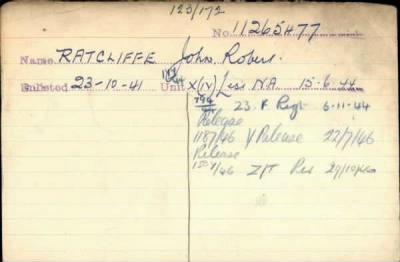 123/172
No. 11265477
Name RATCLIFFE John Robert.
Enlisted 23-10-41 Unit X(IV) List NA 15-6-44
23. F Regt 6-11-44
Release
1187/46 Y Release 22/7/46
Release
Z/T Res